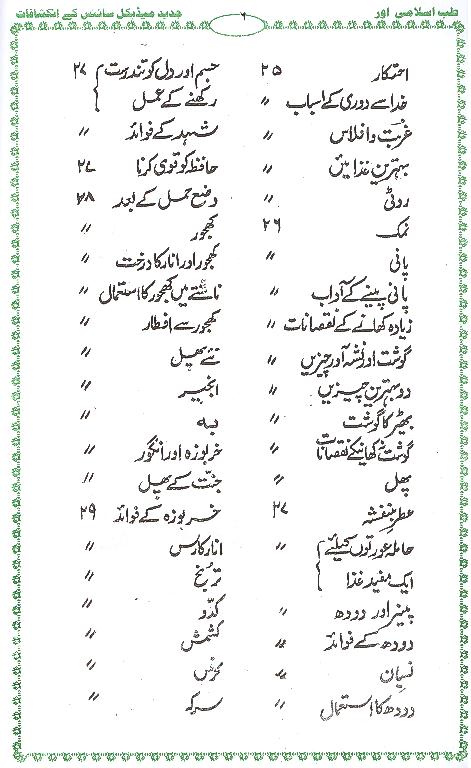 طب اسلامی اور
۲
جدید میڈیکل سائنس کے انکشافات
احتکار ۲۵
خدا سے دوری کے اسباب 〃
غربت و افلاس 〃
بہترین غذائیں 〃
روٹی 〃
نمک ۲۶
پانی 〃
پانی پینے کے آداب 〃
زیادہ کھانے کے نقصانات 〃
گوشت اور نشہ آور چیزیں 〃
دو بہترین چیزیں 〃
بھیڑ کا گوشت 〃
گوشت نہ کھانیکے نقصانات 〃
پھل 〃
عطر بنفشہ ۲۷
حاملہ عورتوں کیلئے 〃
ایک مفید غذا
پنیر اور دودھ 〃
دودھ کے فوائد 〃
نسیان 〃
دودھ کا استعمال 〃
جسم اور دل کو تندرست ۲۷
رکھنے کے عمل
شہد کے فوائد 〃
حافظہ کو قوی کرنا ۲۷
وضع حمل کے بعد ۲۸
کھجور 〃
کھجور اور انار کا درخت 〃
ناشتے میں کھجور کا استعمال 〃
کھجور سے افطار 〃
نئے پھل 〃
انجیر 〃
بہ 〃
خربوزہ اور انگور 〃
جنت کے پھل 〃
خربوزہ کے فوائد ۲۹
انار کا رس 〃
ترنج 〃
کدّو 〃
کشمش 〃
کرفس 〃
سرکہ 〃